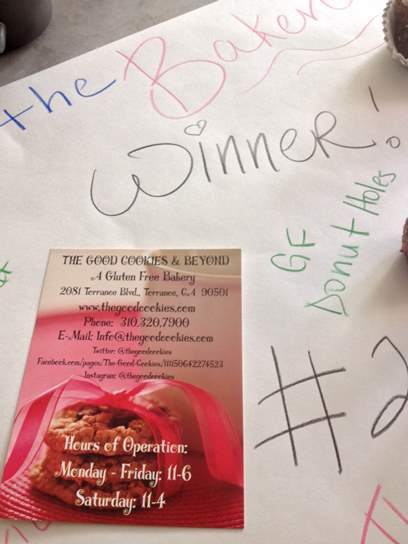 the Baker
Winner!
GF
Donut Holes
#2
THE GOOD COOKIES & BEYOND
A Gluten Free Bakery
2081 Torrance Blvd., Torrance, CA 90501
www.thegoodcookies.com
Phone: 310.320.7900
E-Mail: Info@thegoodcookies.com
Twitter: @thegoodcookies
Instagram: @thegoodcookies
Hours of Operation:
Monday - Friday: 11-6
Saturday: 11-4